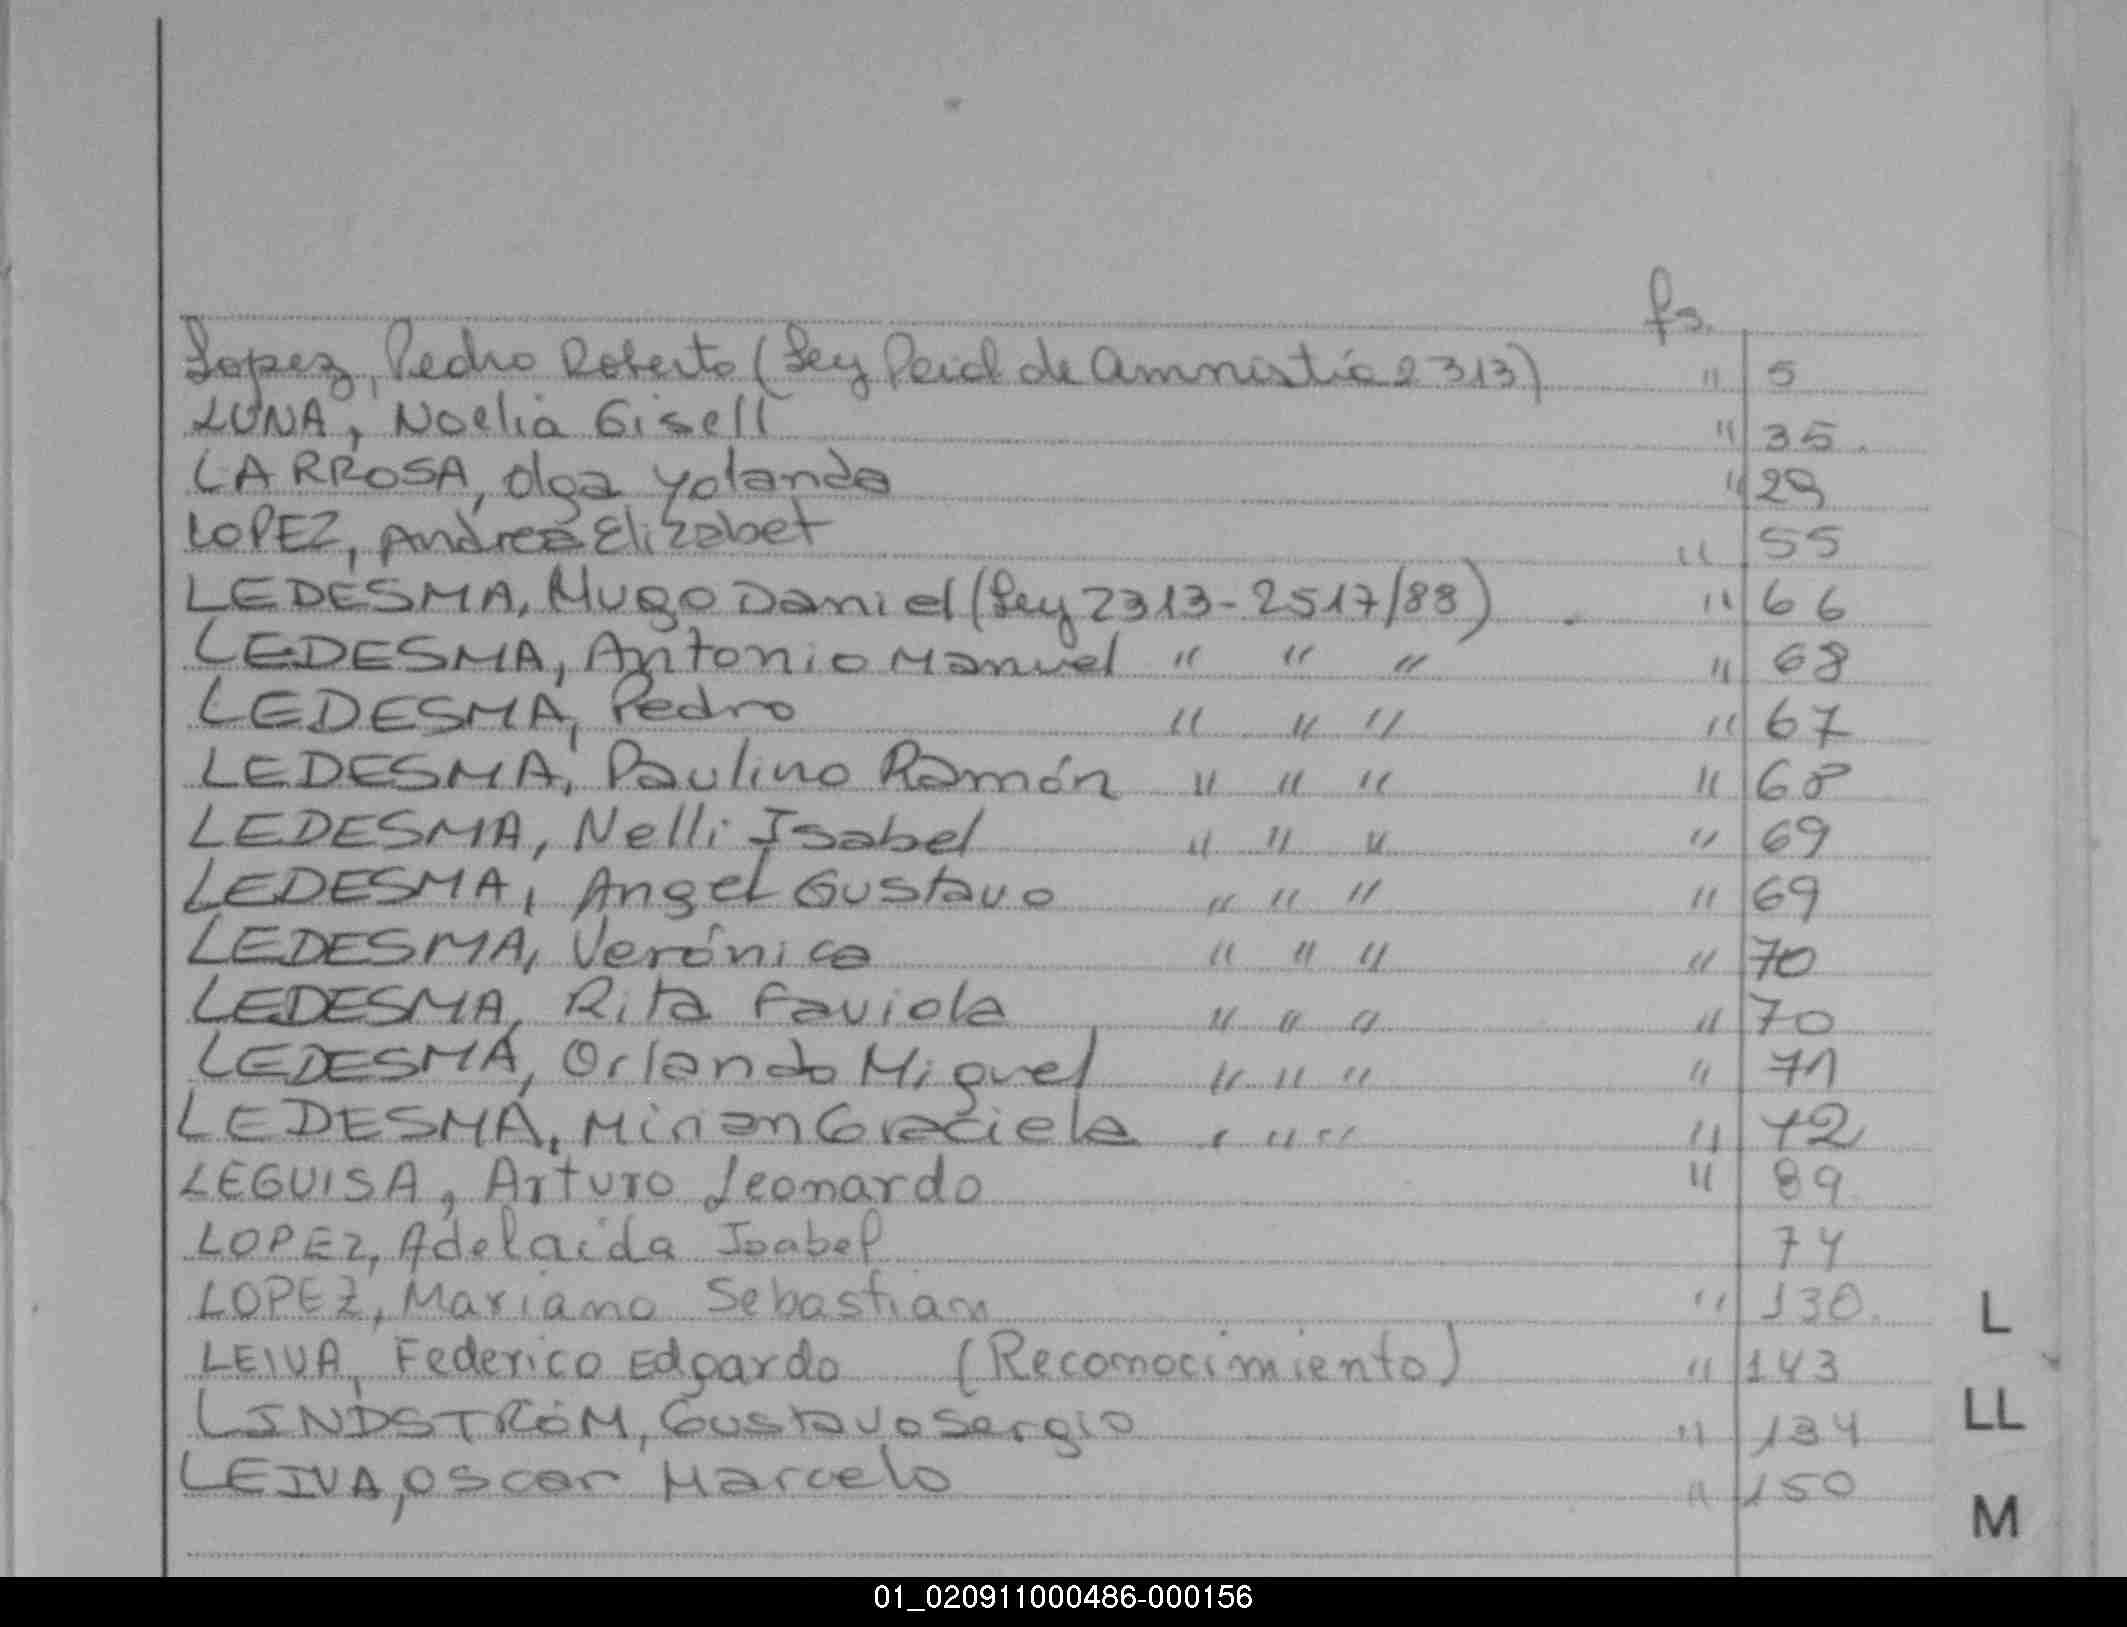 fs.
Lopez, Pedro Roberto (Ley Pcial de Amnistía 2313) " 5
LUNA, Noelia Gisell " 35.
LARROSA, Olga Yolanda " 29
LOPEZ, Andrea Elizabet " 55
LEDESMA, Hugo Daniel (Ley 2313-2517/88) " 66
LEDESMA, Antonio Manuel " " " " 68
LEDESMA, Pedro " " " " 67
LEDESMA, Paulino Ramón " " " " 68
LEDESMA, Nelli Isabel " " " " 69
LEDESMA, Angel Gustavo " " " " 69
LEDESMA, Verónica " " " " 70
LEDESMA, Rita Faviola " " " " 70
LEDESMA, Orlando Miguel " " " " 71
LEDESMA, Mirian Graciela " " " " 72
LEGUISA, Arturo Leonardo " 89
LOPEZ, Adelaida Isabel 74
LOPEZ, Mariano Sebastian " 130.
LEIVA, Federico Edgardo (Reconocimiento) " 143
LINDSTRÖM, Gustavo Sergio " 134
LEIVA, Oscar Marcelo " 150
L
LL
M
01_020911000486-000156